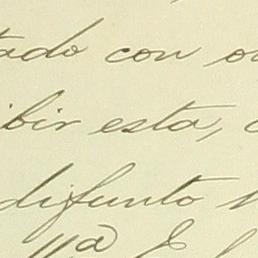 tado con o
ibir esta, c
difunto